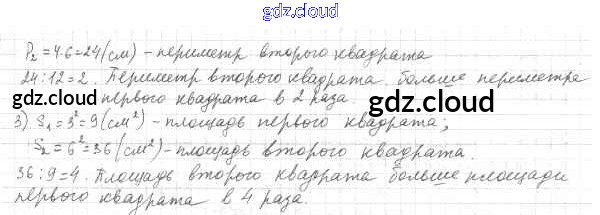 gdz.cloud
P₂=4·6=24(см) – периметр второго квадрата
24:12=2. Периметр второго квадрата больше периметра
gdz.cloud первого квадрата в 2 раза. gdz.cloud
3) S₁=3²=9(см²) – площадь первого квадрата;
S₂=6²=36(см²) – площадь второго квадрата.
36:9=4. Площадь второго квадрата больше площади
первого квадрата в 4 раза.